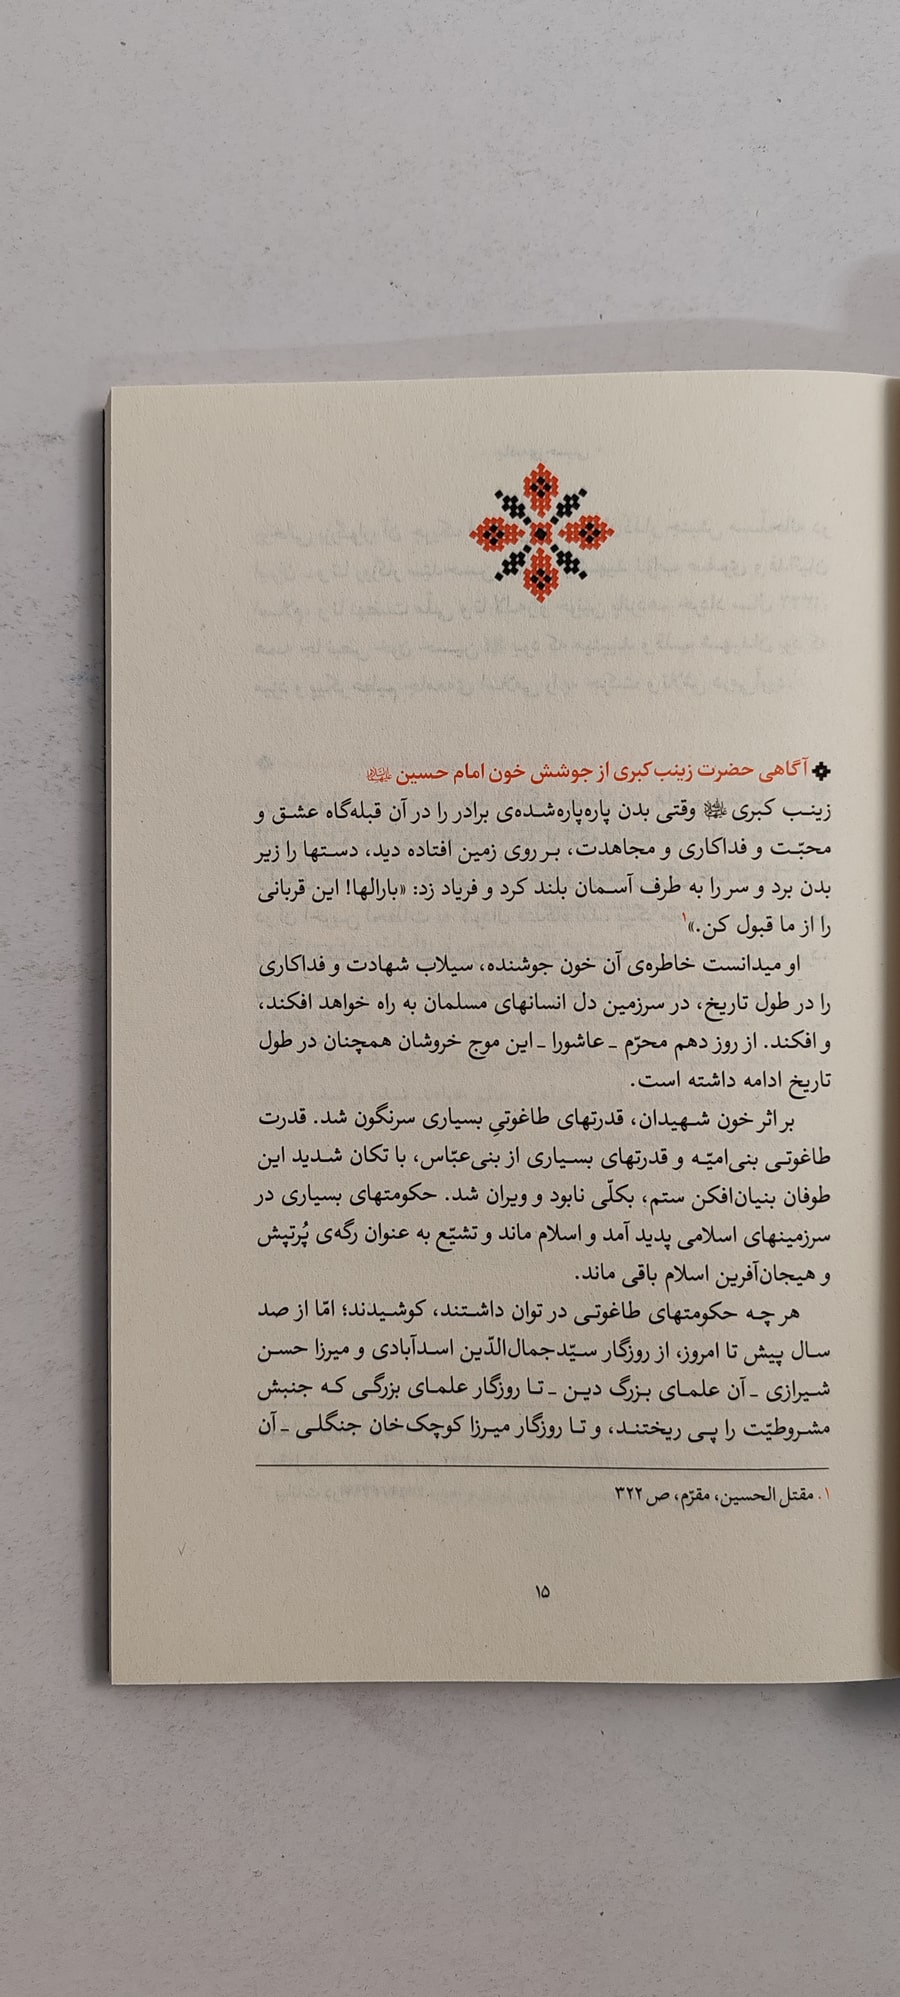 آگاهی حضرت زینب‌کبری از جوشش خون امام حسین علیهماالسلام
زینـب کبری وقتی بدن پاره‌پاره‌شـده‌ی برادر را در آن قبله‌گاه عشـق و
محبّـت و فداکاری و مجاهدت، بـر روی زمین افتاده دید، دستها را زیر
بدن برد و سر را به طرف آسـمان بلند کرد و فریاد زد: «بارالها! این قربانی
را از ما قبول کن.»۱
او میدانست خاطره‌ی آن خون جوشنده، سیلاب شهادت و فداکاری
را در طول تاریخ، در سرزمین دل انسانهای مسلمان به راه خواهد افکند،
و افکند. از روز دهم محرّم ـ عاشورا ـ این موج خروشان همچنان در طول
تاریخ ادامه داشته است.
بر اثر خون شـهیدان، قدرتهای طاغوتیِ بسیاری سرنگون شد. قدرت
طاغوتـی بنی‌امیّـه و قدرتهای بسـیاری از بنی‌عبّاس، با تکان شـدید این
طوفان بنیان‌افکن ستم، بکلّی نابود و ویران شد. حکومتهای بسیاری در
سرزمینهای اسلامی پدید آمد و اسلام ماند و تشیّع به عنوان رگه‌ی پُرتپش
و هیجان‌آفرین اسلام باقی ماند.
هر چـه حکومتهای طاغوتـی در توان داشـتند، کوشـیدند؛ امّا از صد
سـال پیش تا امروز، از روزگار سـیّدجمال‌الدّین اسـدآبادی و میرزا حسـن
شـیرازی ـ آن علمـای بـزرگ دیـن ـ تـا روزگار علمـای بزرگـی کـه جنبش
مشـروطیّت را پـی ریختنـد، و تـا روزگار میـرزا کوچک‌خان جنگلـی ـ آن
۱. مقتل الحسین، مقرّم، ص ۳۲۲
۱۵